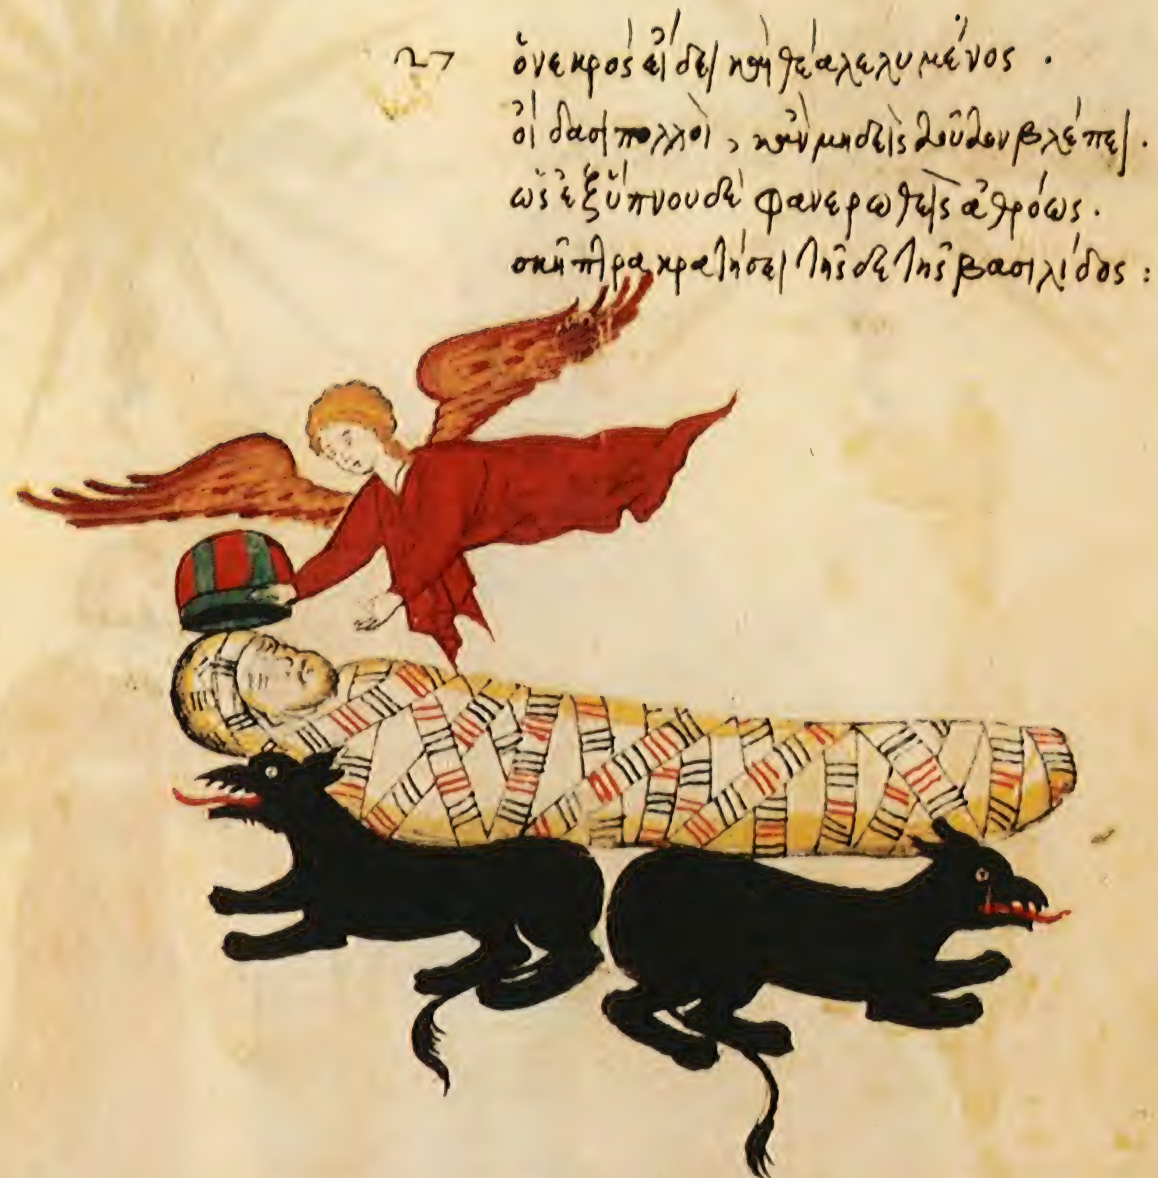 27 ὁ νεκρὸς εἴδει καὶ θέα λελυμένος .
οἴδασι πολλοὶ, κἂν μηδεὶς τοῦτον βλέπει .
ὡς ἐξ ὕπνου δὲ φανερωθεὶς ἀθρόως .
σκῆπτρα κρατήσει τῆς δὲ τῆς βασιλίδος :